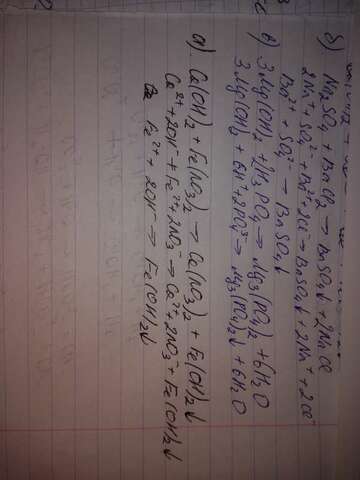 б) Na2SO4 + BaCl2 → BaSO4↓ + 2NaCl
2Na⁺ + SO4²⁻ + Ba²⁺ + 2Cl⁻ → BaSO4↓ + 2Na⁺ + 2Cl⁻
Ba²⁺ + SO4²⁻ → BaSO4↓
в) 3Mg(OH)2 + 2H3PO4 → Mg3(PO4)2 + 6H2O
3Mg(OH)2 + 6H⁺ + 2PO4³⁻ → Mg3(PO4)2↓ + 6H2O
а) Ca(OH)2 + Fe(NO3)2 → Ca(NO3)2 + Fe(OH)2↓
Ca²⁺ + 2OH⁻ + Fe²⁺ + 2NO3⁻ → Ca²⁺ + 2NO3⁻ + Fe(OH)2↓
Fe²⁺ + 2OH⁻ → Fe(OH)2↓